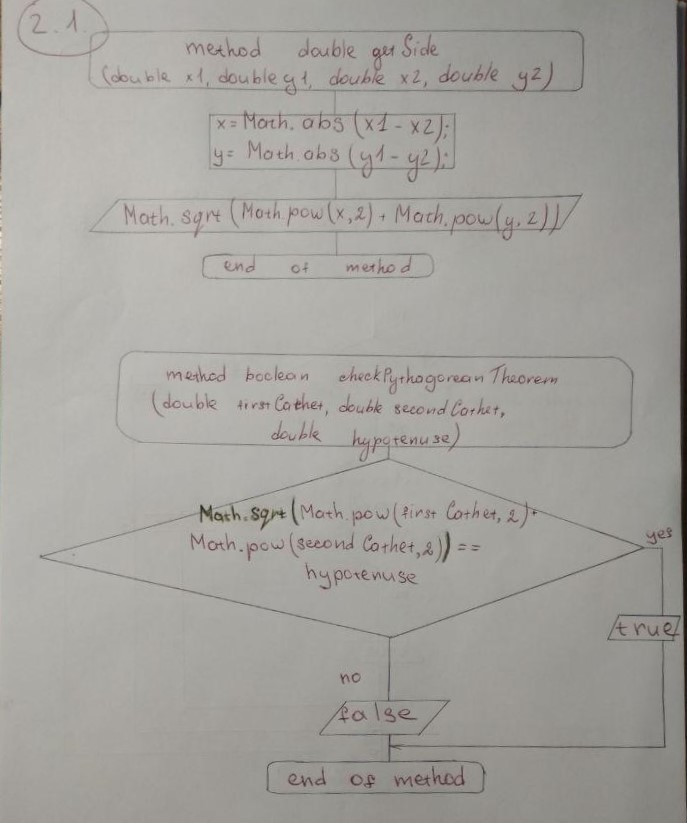 2.1.
method double getSide
(double x1, double y1, double x2, double y2)
x = Math.abs (x1 - x2);
y = Math.abs (y1 - y2);
Math.sqrt (Math.pow(x, 2) + Math.pow(y, 2))
end of method
method boolean checkPythogorean Theorem
(double first Cathet, double second Cathet,
double hypotenuse)
Math.sqrt (Math.pow (first Cathet, 2) +
Math.pow (second Cathet, 2)) ==
hypotenuse
yes
true
no
false
end of method